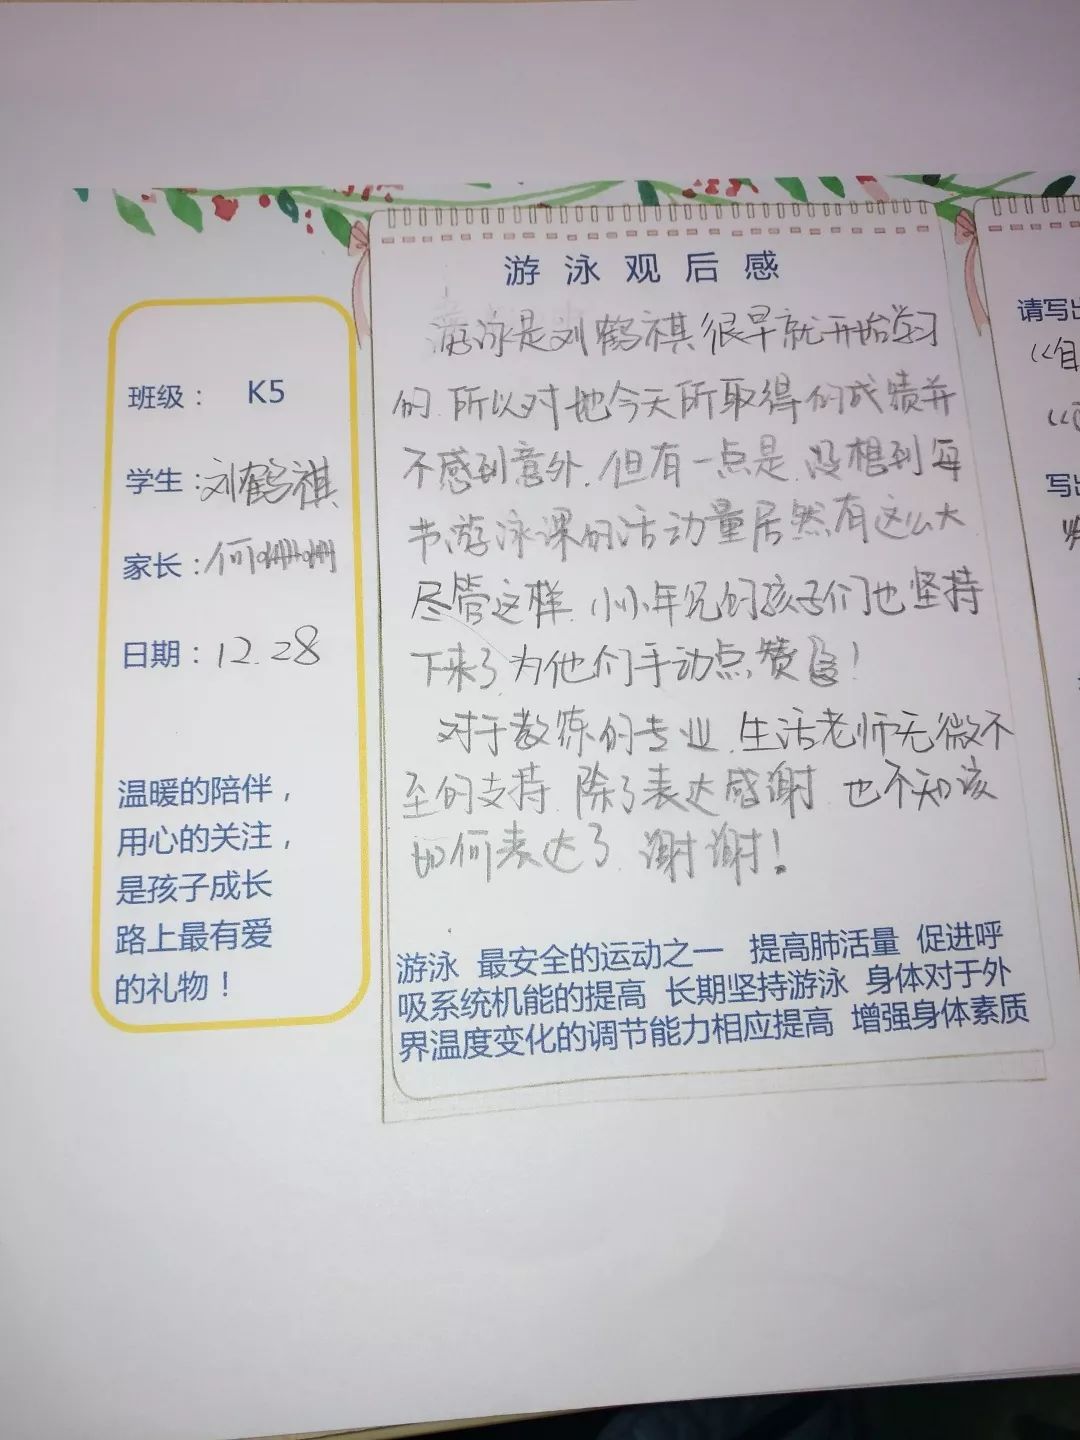 班级： K5
学生：刘鹤祺
家长：何
日期：12.28
温暖的陪伴，
用心的关注，
是孩子成长
路上最有爱
的礼物！
游泳观后感
游泳是刘鹤祺很早就开始学习
的.所以对他今天所取得的成绩并
不感到意外.但有一点是.没想到每
节游泳课的活动量居然有这么大
尽管这样.小小年纪的孩子们也坚持
下来了.为他们手动点赞！
对于教练的专业.生活老师无微不
至的支持.除了表达感谢.也不知该
如何表达了.谢谢！
游泳 最安全的运动之一 提高肺活量 促进呼
吸系统机能的提高 长期坚持游泳 身体对于外
界温度变化的调节能力相应提高 增强身体素质
请写出
《自
写出